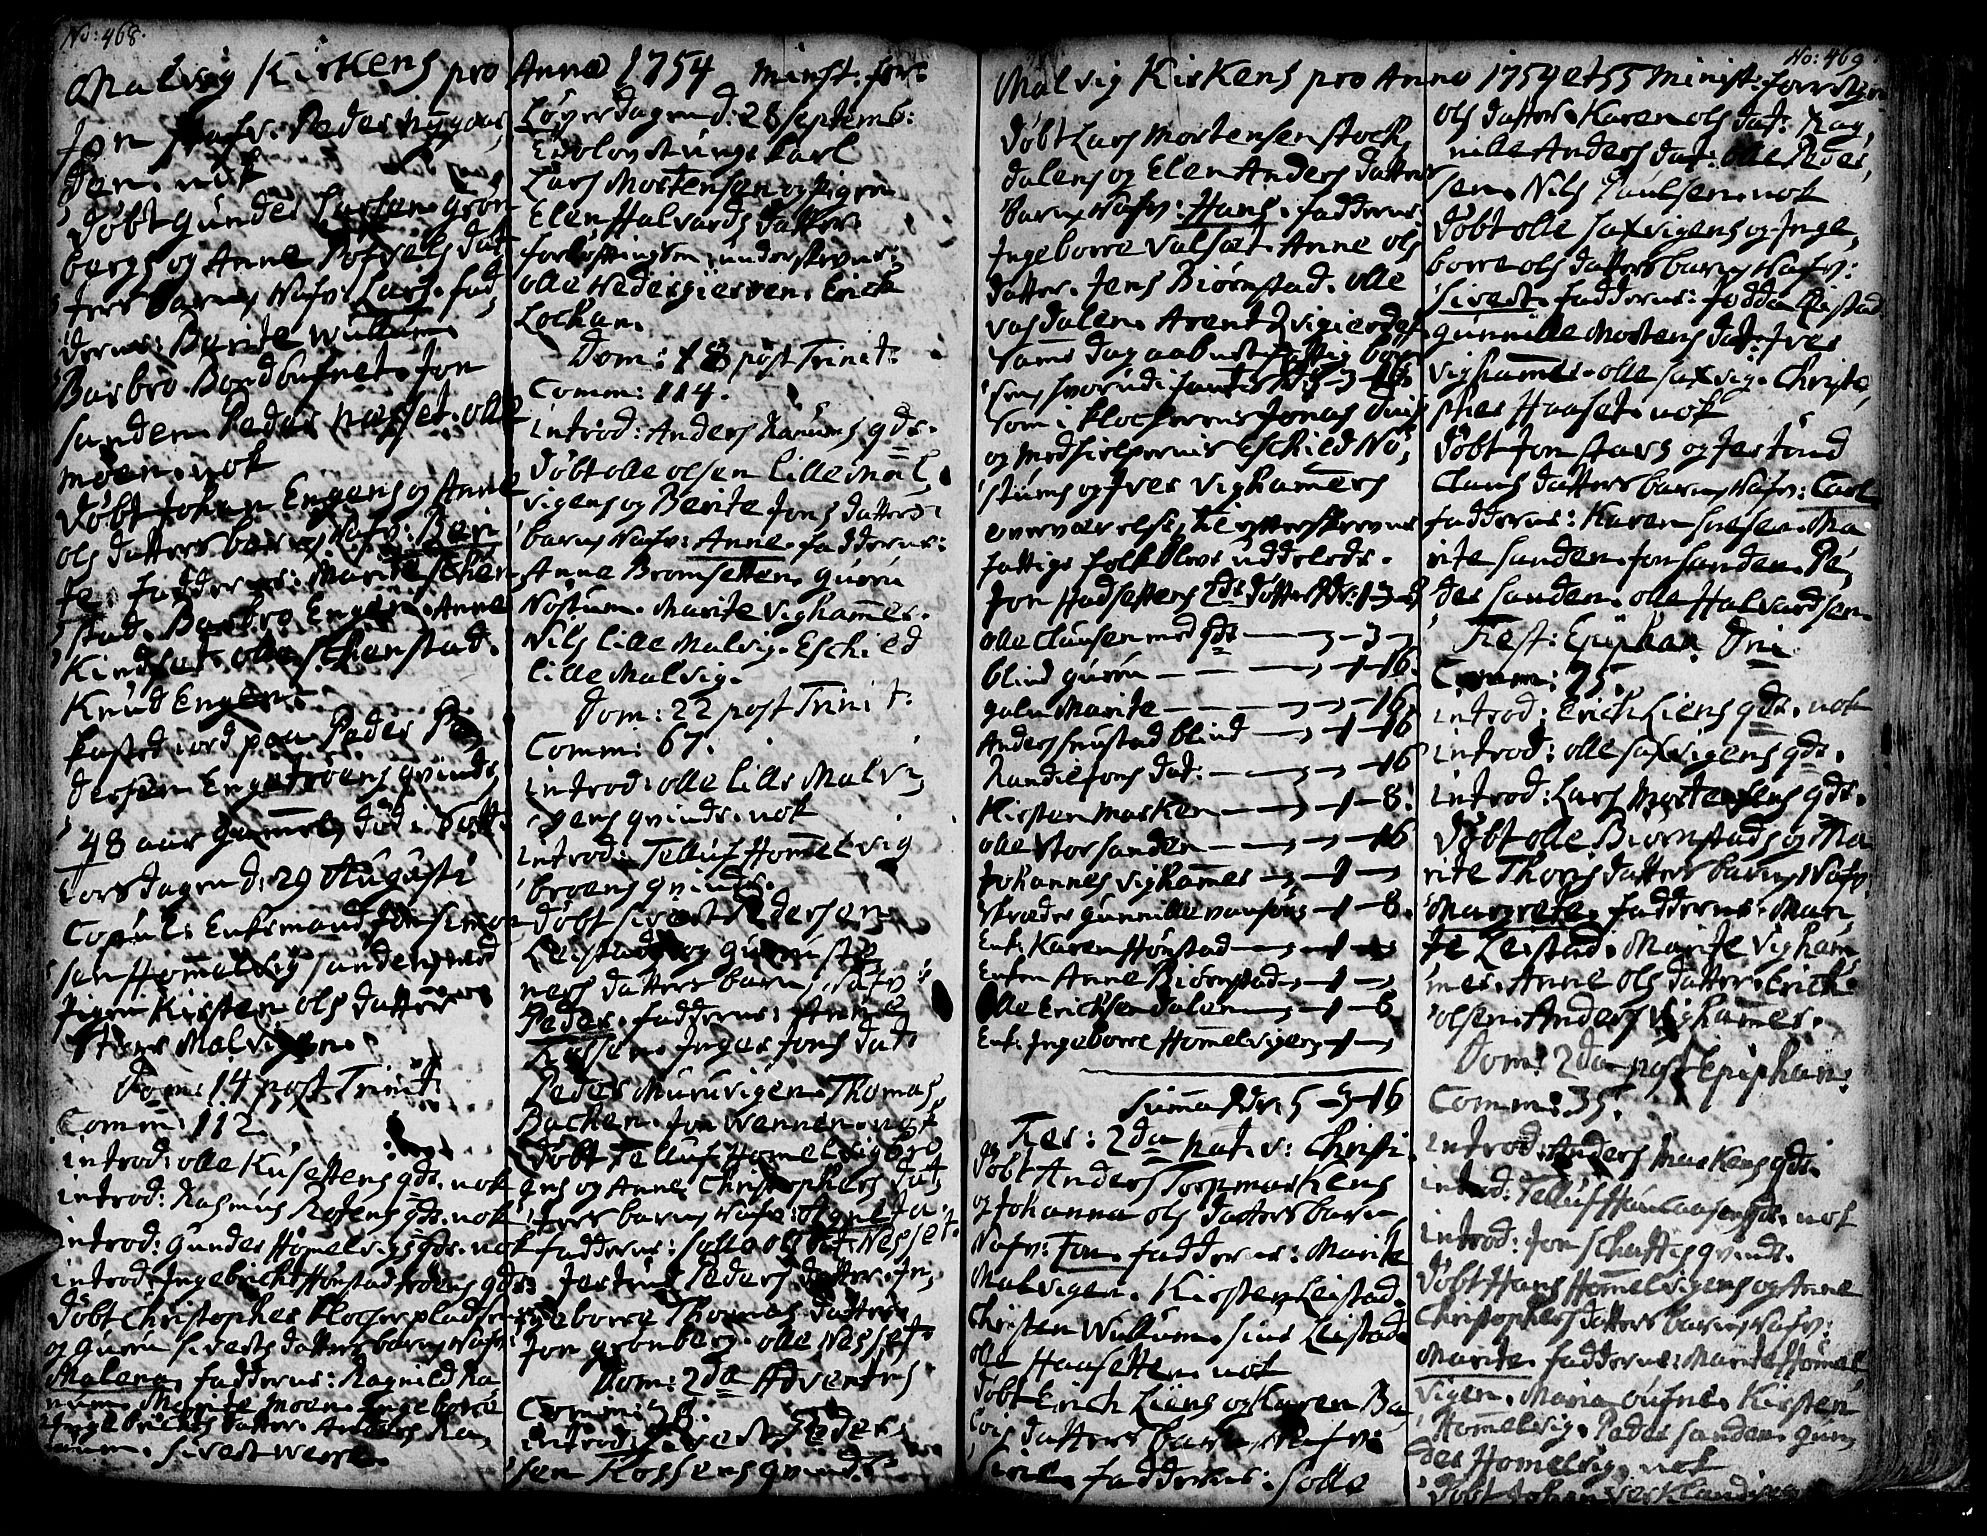 No: 468.
Malvig Kirkens pro Anno 1754 Minst: for:
Jon Peder Nygaar,
den. nok
Døbt Gunder Larsen Grøn
bergs og Anne Povels dat
ters barn Nafv: Lars. fad
derne: Barite Willum.
Barbro Bondbufnet. Jon
sanden. Peder nasset. olle
moen. nok
Døbt Johan Engens og Anne
ols datters barn Nafv: Beri
te. fadderne: Marite Schen
stad. Barbro Engen. Anne
Kindset. olle Schenstad.
Knud Engen.
kasted iord paa Peder Pe,
dersen Engetroens qvinde
48 aar gammel, død i
torsdagen d: 29 Augusti
Copul: Enkemand Jon Simon
sen Hommelvig sanden, med
Pigen Kirsten ols datter
Store Malvigen.
Dom: 14 post Trinit:
Comm: 112.
introd: olle Kusettens qds. nok
introd: Rasmus Rotens qds. nok
introd: Gunder Homelvigs qds. nok
introd: Ingebricht Hønstadtroens qds:
Døbt Christopher Klocherpladsen
og Guru siverts datters barn Nafv:
Malena. fadderne: Ragnild Ra
num. Marite Moen. Ingeborre
Ingebrichts datter. Anders Ra,
num. Sivert Werre.
Løverdagen d: 28 Septemb:
Trolovet unge karl
Lars Mortensen og Pigen
Elen Halvards datter
forløftningsm: underskrevne:
olle Nedergiersven. Erich
Lochan.
Dom: 18 post Trinit:
Comm: 114.
introd: Anders Ranums qds.
Døbt olle olsen lille Mal,
vigens og Berite Jons datters
barn Nafv: Anne. fadderne:
Anne Bromsetten. Guru
Nostum. Marite Vighammer.
Nils lille Malvig. Eschild
lille Malvig.
Dom: 22 post Trinit:
Comm: 67.
introd: olle lille Malvi,
gens qvinde. nok
introd: Telluf Hommelvig
broens qvinde.
Døbt Sivert Pedersen
Leistad og Guru
ners datters barn, Nafv:
Peder. fadderne: Anne
Inger Jons dat:
Peder Muruvigen. Thomas
Bachen. Jon Wennen. nok
Døbt Telluf Homelvigbro
ens og Anne Christophers dat,
ters barn Nafv: Agneta.
fadderne: Solle ols dat: Nesset.
Jertrud Peders datter. In,
geborre Thomas datter.
Jon Grønberg. olle Nesset.
Dom: 2da Adventus
Comm: 78.
introd: Sivert Peder,
sen Rossens qvinde.
No: 469.
Malvig Kirkens pro Anno 1754 et 55 Minist: forretn:
Døbt Lars Mortensen stoch
dalens og Elen Anders datters
barn Nafv: Hans. fadderne
Ingeborre Valset. Anne ols
datter. Jens Biørnstad. olle
vasdalen. Arent Zvigierdet
samme dag aabnet fattig bøs
sen, hvorudi fantes Rdr 5-3-16.
som i Klocherens Jonas
og medhielperne Eschild No,
stums og Iver Vighammers
overværelse, til efterskrevne
fattige folk blev uddeelt.
Jon Hadsettens 2de døttre Rdr: 1-3-8
olle Clausen med qds — 3 —
blind guru — 1-16.
gale Marite — 16.
Anders snustad blind — 1-16
Randie Jons dat: — 16
Kirsten Marken — 1-8.
olle Storsanden — 16
Johannes Vighammer — 1 —
skræder gunnille — 1-8.
Enk: Karen Hønstad — 1 —
Enken Anne Biørnstad — 1 —
olle Erichsen dalen — 1-8
Enk: Ingeborre Homelvigen — 1 —
Summa Rdr: 5-3-16
Fer: 2da nat. v: Christi
Døbt Anders Torpmarkens
og Johanna ols datters barn
Nafv: Jon. fadderne: Marite
Malvigen. Kirsten Leistad.
Christen Willum. Sius Leistad
olle Haasetten. nok
Døbt Erich Liens og Karen Ba
lvis datters barn, Nafv:
Siri. fadderne: Solle
ols datter. Karen ols dat: Rag,
nille Anders dat: olle Peder,
sen. Nils Paulsen. nok
Døbt olle Saxvigens og Inge,
borre ols datters barn Nafv:
Sivert. fadderne: Leistad.
Gunnille Mortens dat: Iver
Vighammer. olle Saxvig. Christo,
pher Haaset. nok
Døbt Jon stavs og Jertrud
Claus datters barn Nafv: Carl
fadderne: Karen Ma
rite sanden. Jon sanden. Pe,
der sanden. olle Halvardsen.
Fest: Epiphan: Dni
Comm: 75.
introd: Erich Liens qds. nok
introd: olle Saxvigens qds.
introd: Lars Mortensens qds.
Døbt olle Biørnstads og Ma
rite Thoris datters barn, Nafv:
Margrete. fadderne: Mari
te Leistad. Marite Vigham
mer. Anne ols datter. Erich
olsen. Anders Vighammer.
Dom: 2da post Epiphan:
Comm: 35.
introd: Anders Markens qds.
introd: Telluf qds. nok
introd: Jon Schaftis qvinde.
Døbt Hans Hommelvigens og Anne
Christophers datters barn Nafv:
Marite. fadderne: Marite Homel
vigen. Maria oufne. Kirsten
Hommelvig. Peder sanden. Gun
der Homelvig. nok
Døbt Johan